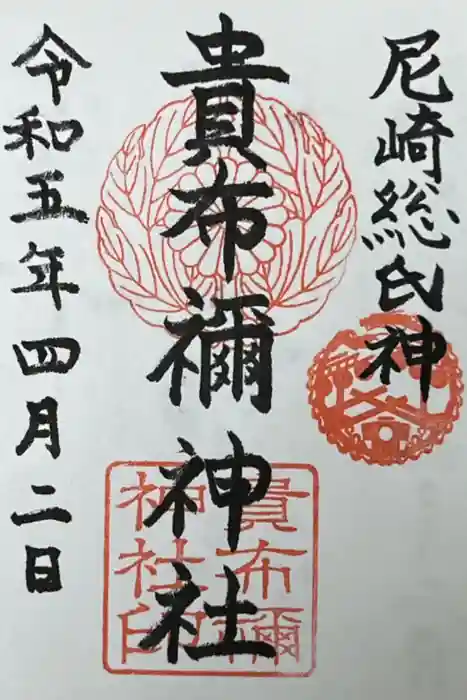 尼崎総氏神
貴布禰神社
貴布禰
神社印
令和五年四月二日